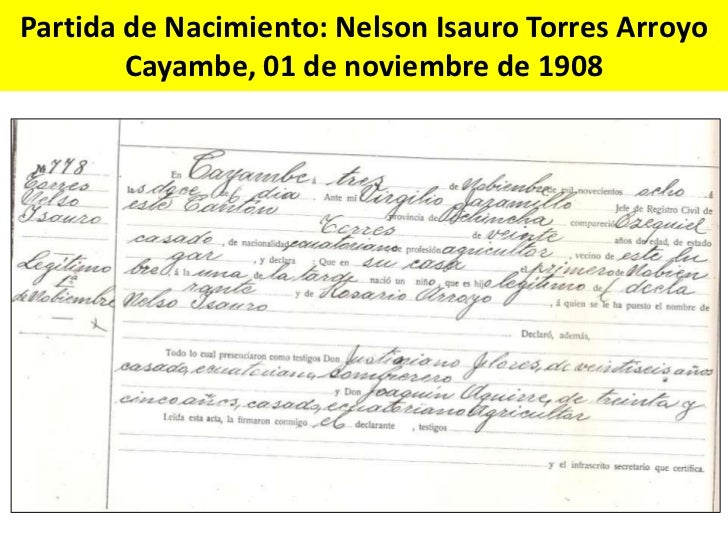 Partida de Nacimiento: Nelson Isauro Torres Arroyo
Cayambe, 01 de noviembre de 1908
Nº 778
Torres
Nelso
Isauro
Legítimo
1º
de Nobiembre
x
En Cayambe á tres de Nobiembre de mil novecientos ocho á
las doce del dia. Ante mi Virgilio Jaramillo Jefe de Registro Civil de
este Cantón provincia de Pichincha compareció Ezequiel
Torres de veinte años de edad, de estado
casado, de nacionalidad ecuatoriano de profesión agricultor, vecino de este lu
gar y declara: Que en su casa el primero de Nobien
bre, á la una de la tarde nació un niño, que es hijo legítimo del decla
rante y de Rosario Arroyo, á quien se le ha puesto el nombre de
Nelso Isauro
Declaró, además,
Todo lo cual presenciaron como testigos Don Justiniano Flores, de veintiseis años
casado, ecuatoriano, sombrerero y Don Joaquín Aguirre, de treinta y
cinco años, casado, ecuatoriano Agricultor
Leída esta acta, la firmaron conmigo el declarante, testigos
y el infrascrito secretario que certifica.